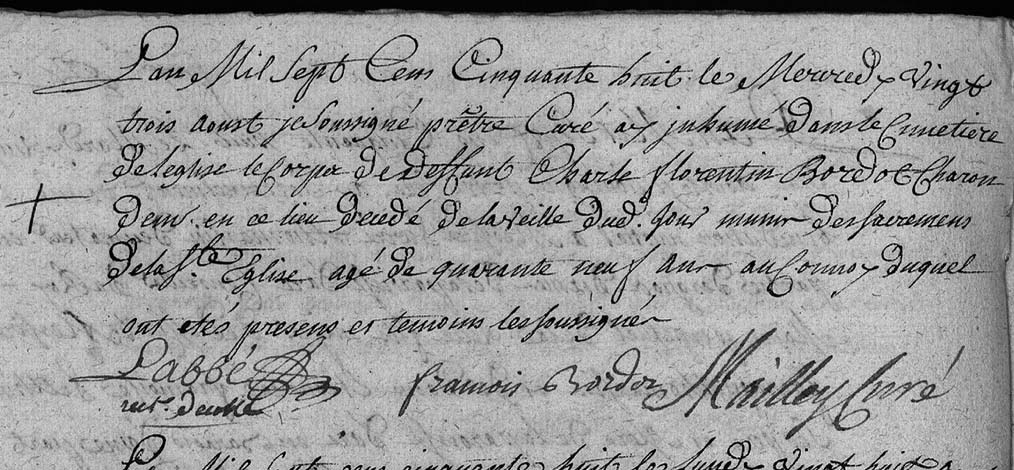 L'an Mil Sept Cens Cinquante huit le Mercredy vingt
trois aoust je soussigné prêtre Curé ay inhumé dans le Cimetiere
de l'eglise le Corps de deffunt Charle florentin Bordot Charon
dem. en ce lieu decedé de la veille dud. jour munir des sacremens
de la Ste Eglise agé de quarante neuf ans au Convoy duquel
ont etés presens et temoins les soussignés
Labbé françois Bordot Mailley Curé
rect. decolle
L'an Mil Sept cens cinquante huit le lundy vingt huit